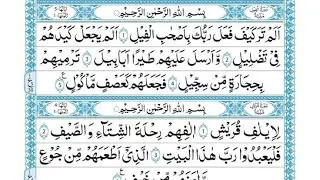 بِسْمِ اللهِ الرَّحْمٰنِ الرَّحِيْمِ
اَلَمْ تَرَ كَيْفَ فَعَلَ رَبُّكَ بِاَصْحٰبِ الْفِيْلِ اَلَمْ يَجْعَلْ كَيْدَهُمْ
فِيْ تَضْلِيْلٍ وَّاَرْسَلَ عَلَيْهِمْ طَيْرًا اَبَابِيْلَ تَرْمِيْهِمْ
بِحِجَارَةٍ مِّنْ سِجِّيْلٍ فَجَعَلَهُمْ كَعَصْفٍ مَّاْكُوْلٍ
بِسْمِ اللهِ الرَّحْمٰنِ الرَّحِيْمِ
لِاِيْلٰفِ قُرَيْشٍ اٖلٰفِهِمْ رِحْلَةَ الشِّتَآءِ وَالصَّيْفِ
فَلْيَعْبُدُوْا رَبَّ هٰذَا الْبَيْتِ الَّذِيْٓ اَطْعَمَهُمْ مِّنْ جُوْعٍ